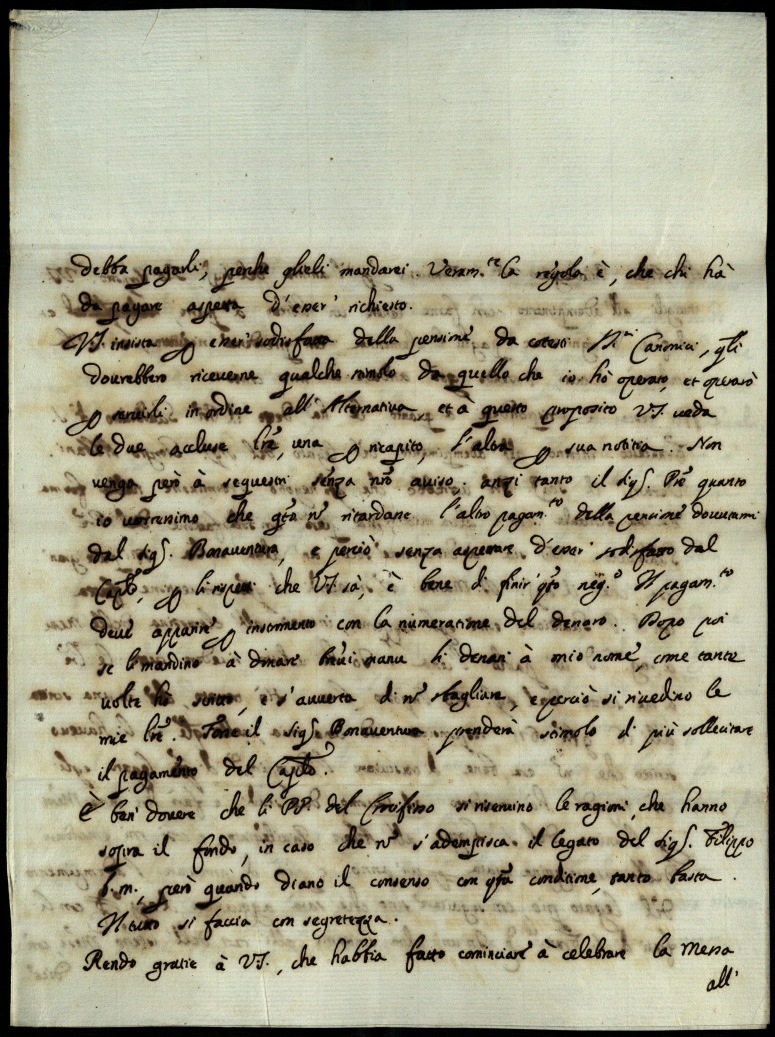 debba pagarli, perche glieli mandarei. Veram.te la regola è, che chi hà
da pagare aspetta d'esser' richiesto.
VS. insista p esser' sodisfatta della pensione da cotesti SS.ri Canonici, qli
dovrebbero riceverne qualche stimolo da quello che io hò operato, et operarò
p servirli in ordine all'Alternativa, et à questo proposito VS. veda
le due accluse lre, una p ricapito, l'altra p sua notitia. Non
venga però à sequestri senza nro aviso. anzi tanto il Sig. Pre quanto
io vorressimo che qta nō ritardasse l'altro pagam.to della pensione dovutami
dal Sig. Bonaventura, e perciò senza aspettare d'esser' sodisfatto dal
Caplo, p li rispetti che VS. sà, è bene di finir' qto neg.o Il pagam.to
deve apparire p instrumento con la numeratione del denaro. Dopo poi
se li mandino à donare brevi manu li denari à mio nome, come tante
volte hò scritto, e s'avverta di nō sbagliare, e perciò si rivedino le
mie lre. Forse il Sig. Bonaventura prenderà stimolo di più sollecitare
il pagamento del Caplo.
È ben' dovere che li PP. del Crocifisso si riservino le ragioni, che hanno
sopra il fondo, in caso che nō s'adempisca il legato del Sig. Filippo
b.m., però quando diano il consenso con qta conditione, tanto basta.
Il tutto si faccia con segretezza.
Rendo gratie à VS., che habbia fatto cominciare à celebrare la Messa
all'